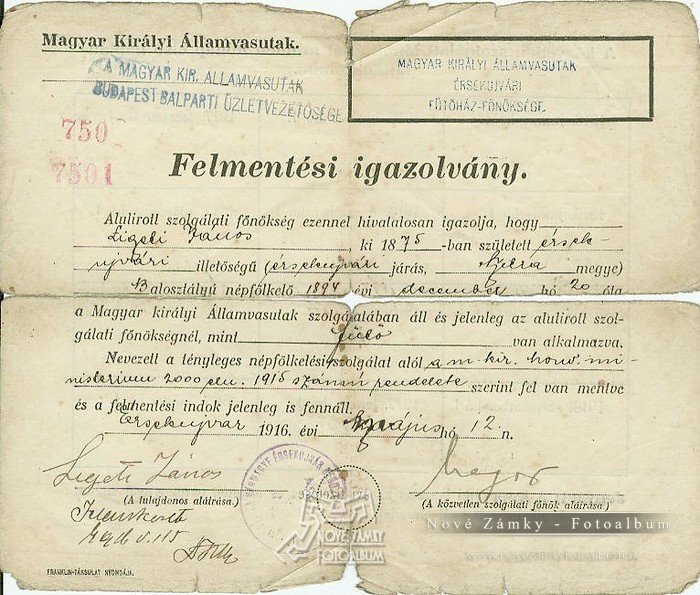 Magyar Királyi Államvasutak.
A MAGYAR KIR. ÁLLAMVASUTAK
BUDAPEST BALPARTI ÜZLETVEZETŐSÉGE
MAGYAR KIRÁLYI ÁLLAMVASUTAK
ÉRSEKUJVÁRI
FŰTŐHÁZ-FŐNÖKSÉGE.
750
7501
Felmentési igazolvány.
Alulirott szolgálati főnökség ezennel hivatalosan igazolja, hogy
Ligeti János, ki 1875-ban született érsek-
ujvári illetőségű (érsekujvári járás, Nyitra megye)
B alosztályú népfölkelő 1894 évi december hó 20 óta
a Magyar királyi Államvasutak szolgálatában áll és jelenleg az alulirott szol-
gálati főnökségnél, mint fűtő van alkalmazva.
Nevezett a tényleges népfölkelési szolgálat alól a m. kir. honv. mi-
nisterium 2000 eln. 1915 számú rendelete szerint fel van mentve
és a felmentési indok jelenleg is fennáll.
Érsekujvár 1916. évi május hó 12. n.
Ligeti János
(A tulajdonos aláirása.)
(A közvetlen szolgálati főnök aláirása.)
ÉRSEKUJVÁR
NOVÉ ZÁMKY
FOTOALBUM
Nové Zámky - Fotoalbum
FRANKLIN-TÁRSULAT NYOMDÁJA.